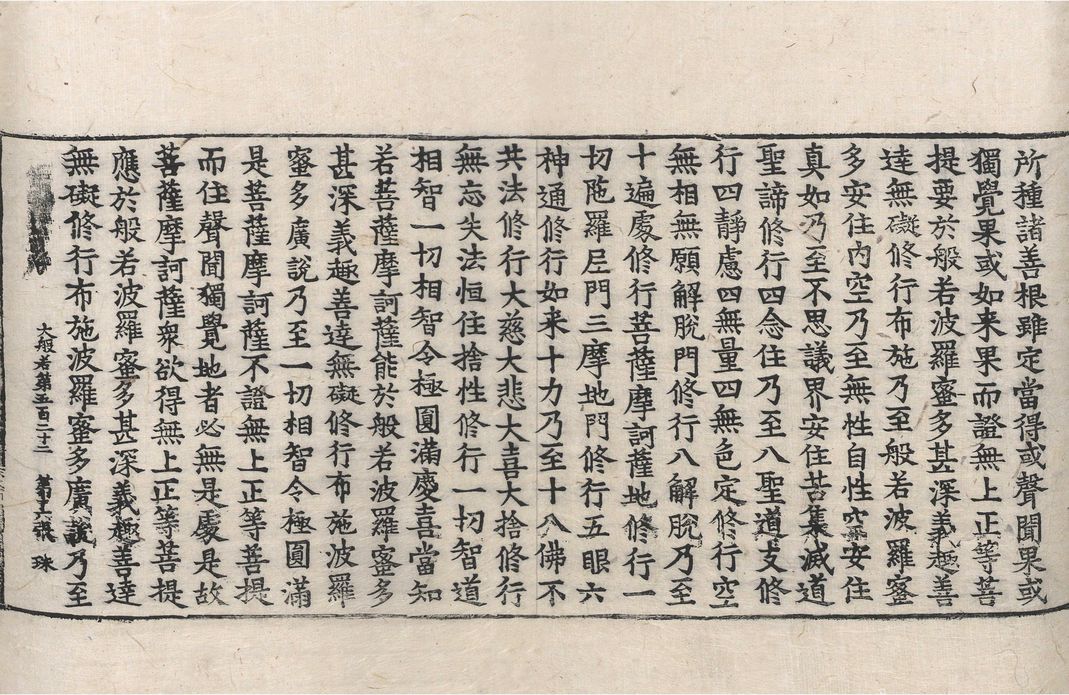 所種諸善根雖定當得或聲聞果或
獨覺果或如来果而證無上正等菩
提要於般若波羅蜜多甚深義趣善
達無礙修行布施乃至般若波羅蜜
多安住内空乃至無性自性空安住
真如乃至不思議界安住苦集滅道
聖諦修行四念住乃至八聖道支修
行四靜慮四無量四無色定修行空
無相無願解脫門修行八解脫乃至
十遍處修行菩薩摩訶薩地修行一
切陁羅尼門三摩地門修行五眼六
神通修行如来十力乃至十八佛不
共法修行大慈大悲大喜大捨修行
無忘失法恒住捨性修行一切智道
相智一切相智令極圓滿慶喜當知
若菩薩摩訶薩能於般若波羅蜜多
甚深義趣善達無礙修行布施波羅
蜜多廣說乃至一切相智令極圓滿
是菩薩摩訶薩不證無上正等菩提
而住聲聞獨覺地者必無是處是故
菩薩摩訶薩衆欲得無上正等菩提
應於般若波羅蜜多甚深義趣善達
無礙修行布施波羅蜜多廣說乃至
大般若第五百二十二 張 珠